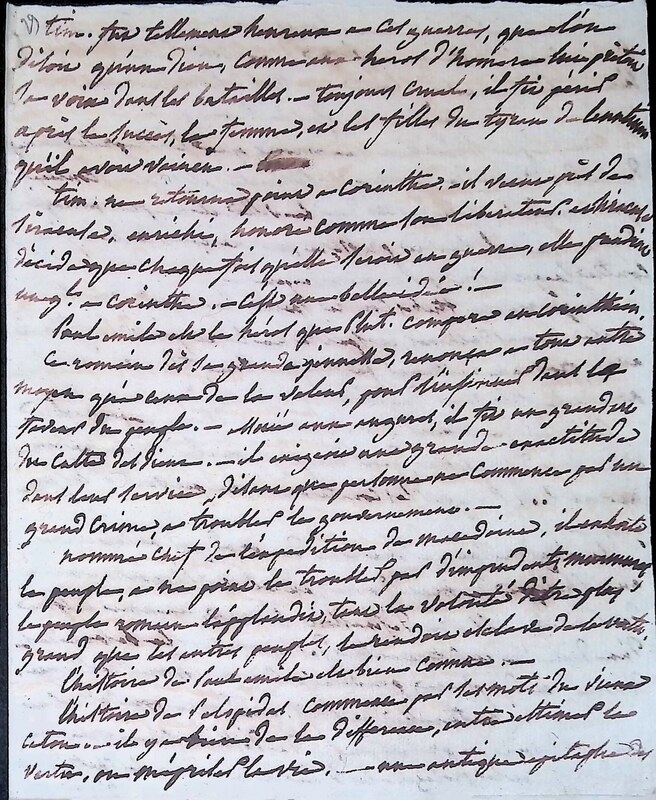 tim. fut tellement heureux a ces guerres, que l'on
disoit qu'un dieu, comme aux heros d'homere lui pretoit
sa voix dans les batailles. — toujours cruel, il fit périr
après le succès, la femme, et les filles du tyran de
qu'il avoit vaincu. —
tim. ne retourna point a Corinthe. il vécut près de
siracuse, enrichi, honoré comme son liberateur. et siracuse
décida que chaque fois qu'elle seroit en guerre, elle prendroit
un gl. a Corinthe. — C'est une belle idée! —
Paul emile est le héros que Plut. compare au Corinthien
Ce romain dès sa grande jeunesse, renonça a tout autre
moyen qu'a ceux de la valeur, pour dans la
faveur du peuple. — aux augures, il fit une grande
du Culte des dieux. — il exigeoit une grande exactitude
dans leur service, disant que personne ne Commence par un
grand Crime a troubler le gouvernement. —
nommé Chef de l'expedition de macedoine, il exhorte
le peuple, a ne point le troubler par d'imprudents murmures,
le peuple romain l'applaudit, tant la volonté d'être plus
grand que les autres peuples, le rendoit esclave de la vertu.
L'histoire de Paul emile est bien connue. —
L'histoire de Pelopidas commence par les mots du vieux
caton. — il y a bien de la difference, entre estimer la
vertu, ou mépriser la vie. — une antique epitaphe des